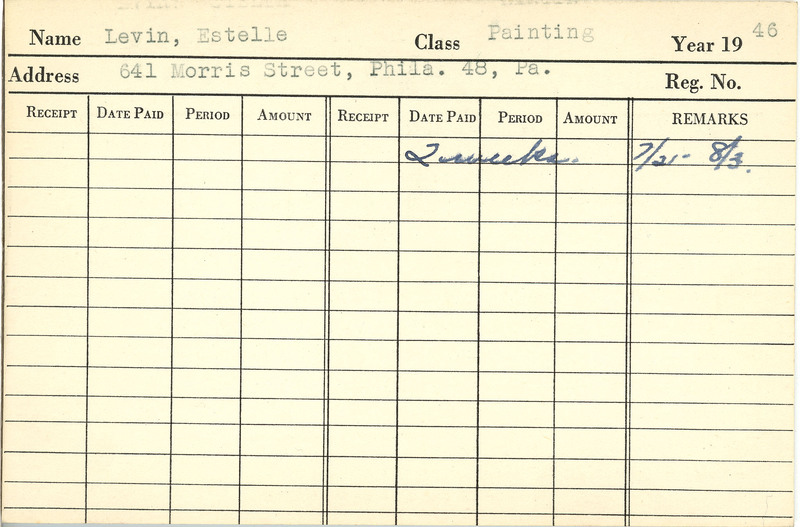 Name Levin, Estelle Class Painting Year 19 46
Address 641 Morris Street, Phila. 48, Pa. Reg. No.
RECEIPT DATE PAID PERIOD AMOUNT RECEIPT DATE PAID PERIOD AMOUNT REMARKS
2 weeks. 7/21 - 8/3.